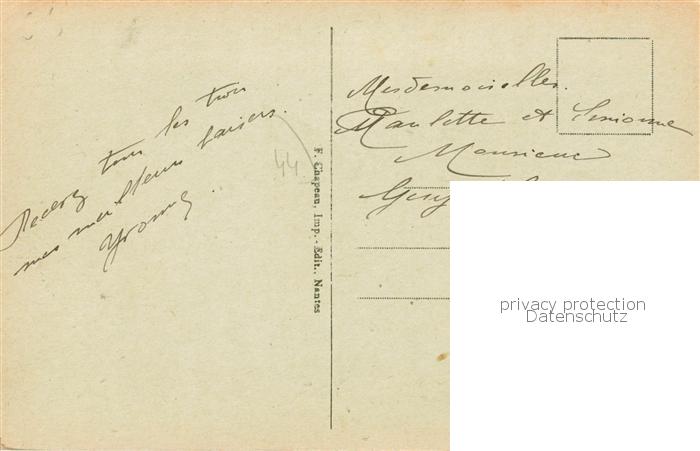 Recevez tous les trois
mes meilleurs baisers.
Yvonne
44
F. Chapeau, Imp. - Edit., Nantes
Mesdemoiselles
Paulette et Simone
Monsieur
Guy
privacy protection
Datenschutz